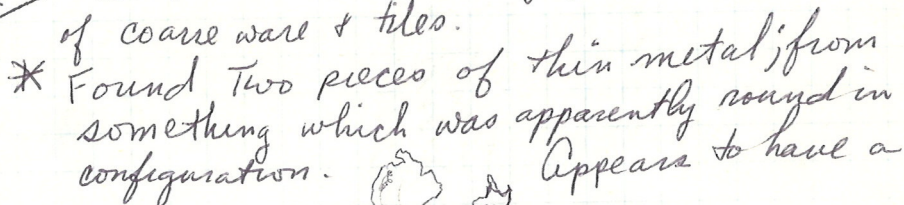 of coarse ware & tiles.
* Found Two pieces of thin metal; from
something which was apparently round in
configuration. Appears to have a